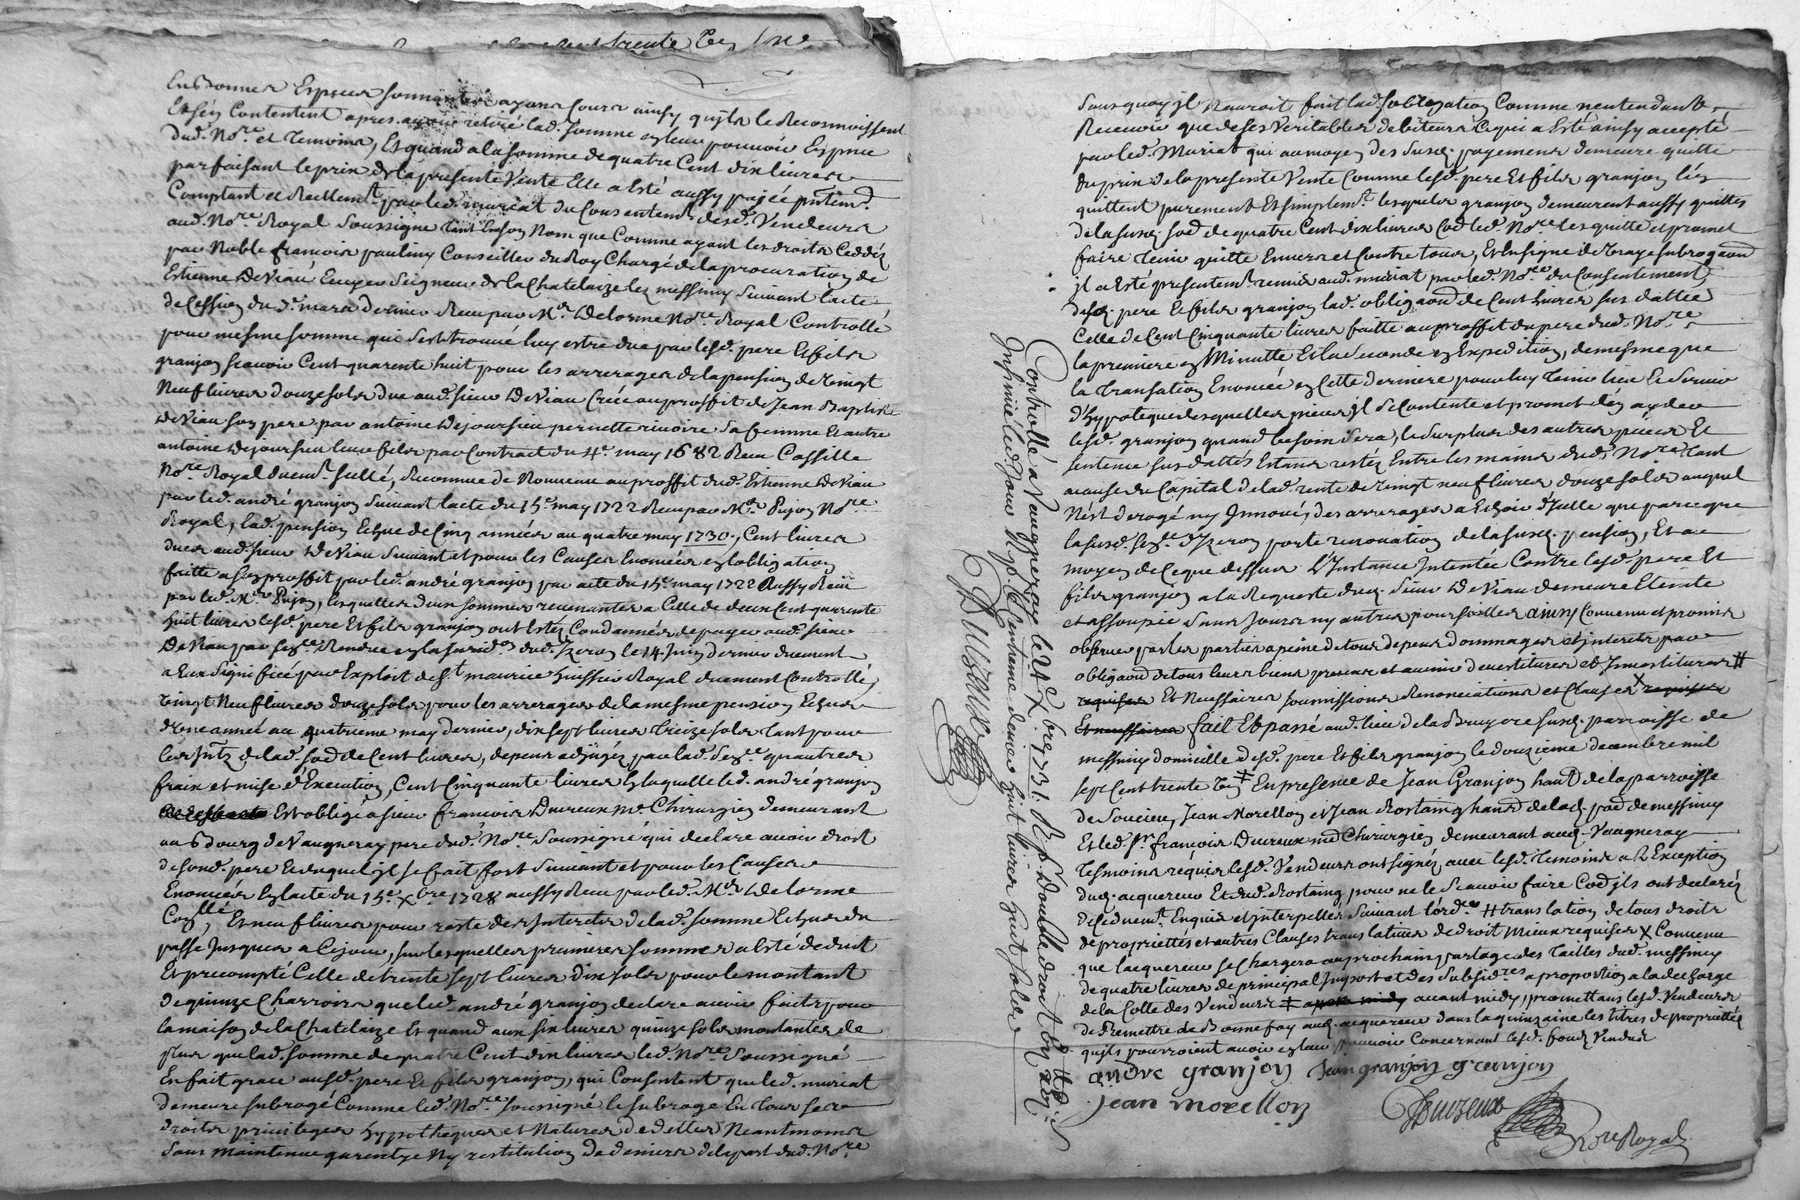 trente Un
En bonnes Especes sonnantes ayans cours ainsy qu'jls le Reconnoissent
Et s'en Contentent apres avoir retiré lad. somme en leur pouvoir En pnce
dud. No.re et Temoins, Et quand a la somme de quatre Cent dix livres
parfaisant le prix de la presente Vente Elle a Esté aussy payée pntem.t
Comptant et Reellem.t par led. muriat du Consentem.t desd. Vendeurs
aud. No.re Royal soussigné tant En son Nom que Comme ayant les droits Ceddéz
par Noble françois pauliny Conseiller du Roy Chargé de la procuration de
Estienne De Viau Ecuyer Seigneur de la Chatelaize lez messimy suivant l'acte
de Cession du 3.e mars dernier Reçu par M.e Delorme No.re Royal Controllé
pour mesme somme qui s'est trouvée luy estre due par lesd. pere Et fils
granjon scavoir Cent quarente huit pour les arrerages de la pension de vingt
Neuf livres douze sols due aud. sieur De Viau Créée au proffit de Jean Baptiste
De Viau son pere par antoine Dejoursieu pernette rivoire sa femme Et autre
antoine Dejoursieu leur fils par Contract du 4.e may 1682 Reçu Cossille
No.re Royal duem.t scellé, Reconnue de Nouveau au proffit dud. Estienne De Viau
par led. andré granjon suivant l'acte du 15.e may 1722 Reçu par M.e Pujon No.re
Royal, lad. pension Echue de Cinq années au quatre may 1730., Cent livres
dues aud. sieur De Viau suivant et pour les Causes Enoncées en l'obligation
faitte a son proffit par led. andré granjon par acte du 15.e may 1722 Aussy Reçu
par led. M.e Pujon, lesquelles deux sommes revenantes a Celle de deux Cent quarente
huit livres lesd. pere Et fils granjon ont Estés Condannés de payer aud. sieur
De Viau par Sen.ce Rendue en la Jurid.on dud. Yzeron le 14. Juin dernier duement
a Eux signiffiée par Exploit de S.t maurice huissier Royal duement Controllé,
vingt Neuf livres douze sols pour les arrerages de la mesme pension Echus
d'une année au quatrieme may dernier, dix sept livres treize sols tant pour
les Jnt.z de lad. so.e de Cent livres, depens adjugéz par lad. Sen.ce qu'autres
frais et mise d'Execution, Cent Cinquante livres En laquelle led. andré granjon
Est obligé a sieur françois Dureux m.e Chirurgien demeurant
au Bourg de Vaugneray pere dud. No.re soussigné qui declare avoir droit
de sond. pere Et duquel jl se fait fort suivant et pour les Causes
Enoncées En l'acte du 15.e Xbre 1728 aussy Reçu par led. M.e Delorme
Con.llé, Et neuf livres pour reste des Jnterets de lad. somme Echus du
passé Jusques a Cejour, sur lesquelles premieres sommes a Esté deduit
Et precompté Celle de trente sept livres dix sols pour le montant
de quinze Charrois que led. andré granjon declare avoir faits pour
la maison de la Chatelaize Et quand aux six livres quinze sols montantes de
plus que lad. somme de quatre Cent dix livres led. No.re soussigné
En fait grace ausd. pere Et fils granjon, qui Consentent que led. muriat
demeure subrogé Comme led. No.re soussigné le subroge En tous ses
droits privileges hypotheques et Natures de dettes Neantmoins
sans maintenue garentye Ny restitution de deniers de la part dud. No.re
sans quoy jl n'auroit fait lad. subrogation Comme n'entendant
Recevoir que de ses Veritables debiteurs Ce qui a Esté ainsy accepté
par led. Muriat qui au moyen des susd. payemens demeure quitte
du prix de la presente Vente Comme lesd. pere Et fils granjon l'en
quittent purement Et simplem.t lesquels granjon demeurent aussy quittes
de la susd. so.e de quatre Cent dix livres Co.e led. No.re les quitte et promet
faire tenir quitte Envers et Contre tous, Et En signe de vraye subrogaon
jl a Esté presentem.t remis aud. muriat par led. No.re du Consentement
desd. pere Et fils granjon lad. obligaon de Cent livres sus dattée
Celle de Cent Cinquante livres faitte au proffit du pere dud. No.re,
la premiere en Minutte Et la seconde en Expedition, de mesme que
la Transation Enoncée en Cette derniere pour luy tenir lieu Et servir
d'hypoteque desquelles pieces jl se Contente et promet d'en ayder
lesd. granjon quand besoin sera, le surplus des autres pieces Et
sentence sus dattés Estans restéz Entre les mains dud. No.re tant
a cause du Capital de lad. rente de vingt neuf livres douze sols auquel
N'est derogé ny Jnnové, des arrerages a Echoir d'jcelle que parceque
la susd. Sen.ce d'Yzeron porte renovation de la susd. pension, Et au
moyen de Ce que dessus L'Jnstance Jntentée Contre lesd. pere Et
fils granjon a la Requeste dud. sieur De Viau demeure Eteinte
et assoupie sans Jours ny autres poursuittes ainsy Convenu et promis
observer par les parties a peine de tous depens dommages et jnterets par
obligaon de tous leurs biens presens et avenir devestitures et Jnvestitures #
requises Et Necessaires soumissions Renonciations et Clauses X requises
Et necessaires fait Et passé aud. lieu de la Bruyere susd. parroisse de
messimy domicille desd. pere Et fils granjon le douzieme decembre mil
sept Cent trente Un ‡ En presence de Jean Granjon hant de la parroisse
de Soucieu, Jean Morellon et Jean Rostaing hans de lad. par.e de messimy
Et led. s.r françois Dureux m.e Chirurgien demeurant aud. Vaugneray
Tesmoins requis lesd. Vendeurs ont signéz avec lesd. temoins a l'Exception
dud. acquereur Et dud. Rostaing pour ne le scavoir faire Co.e jls ont declarés
de ce duem.t Enquis et jnterpellés suivant l'ord.ce # translation de tous droits
de propriettés et autres Clauses translatives de droit mieux requises X Convenu
que l'acquereur se Chargera au prochain partage des Tailles dud. messimy
de quatre livres de principal Jmpost et des subsid.res a proportion a la decharge
de la Cotte des Vendeurs ‡ avant midy, promettans lesd. Vendeurs
de Remettre de Bonne foy aud. acquereur dans la quinzaine les titres de propriettés
qu'jls pourroient avoir en leur pouvoir Concernant lesd. fonds Vendus
andré granjon Jean granjon granjon
Jean morellon
Dureux
No.re Royal
Controllé a Vaugneray le 24.e Xbre 1731. R.
Insinué led. jour
Dureux